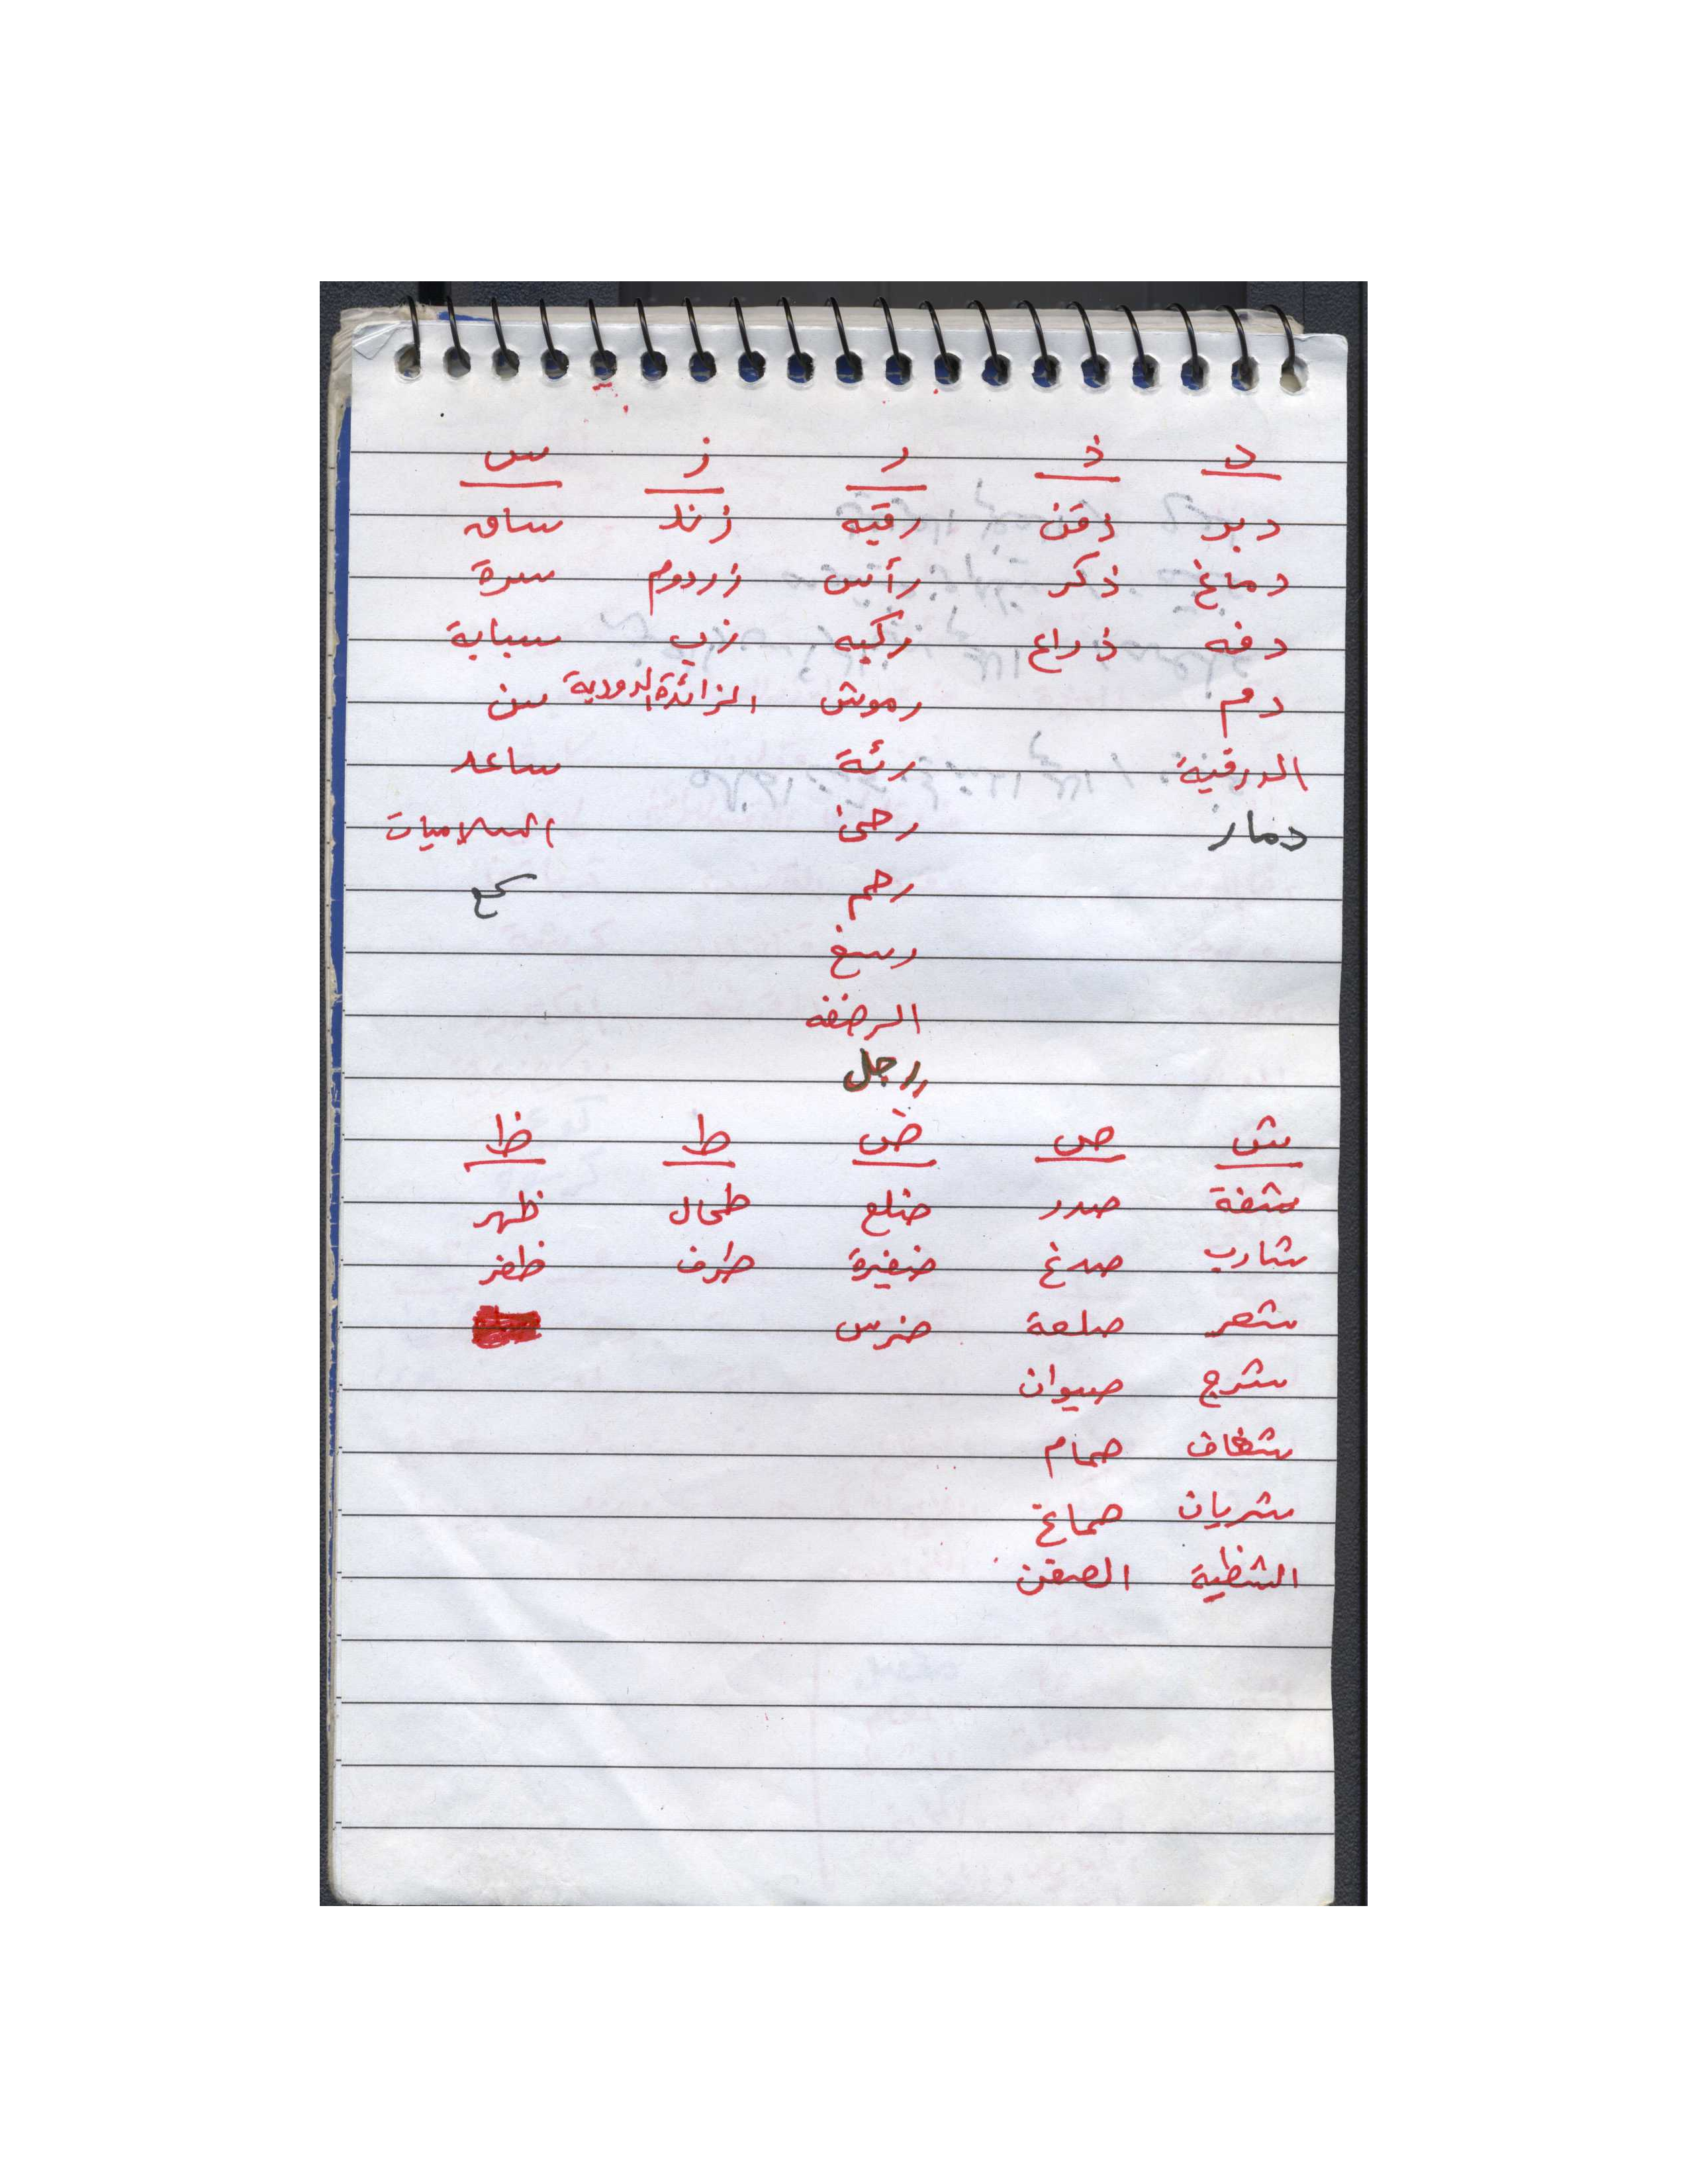 د ذ ر ز س
دبر ذقن رقبه زند ساق
دماغ ذكر رأس زردوم سرة
دفه ذراع ركبه زب سبابة
دم رموش الزائدة الدودية سن
الدرقية رئة ساعد
دمار رحى السلاميات
رحم
رسغ
الرضفه
رجل
ش ص ض ط ظ
شفة صدر ضلع طحال ظهر
شارب صدغ ضفيرة طرف ظفر
شعر صلعة ضرس
شرج صيوان
شغاف صمام
شريان صماغ
الشظية الصفن